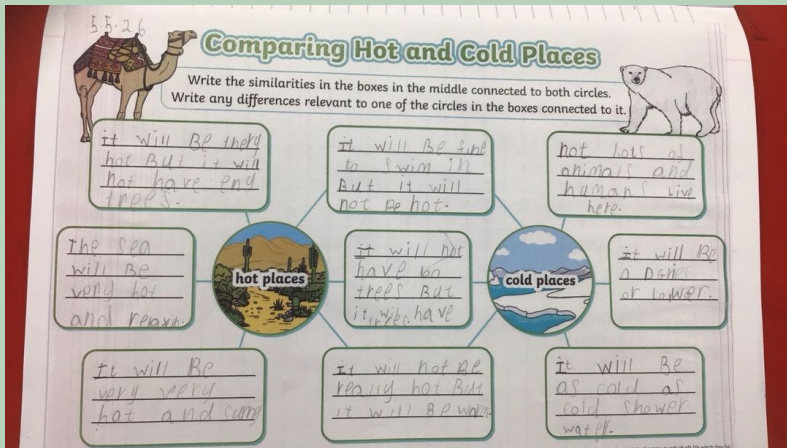 5.5.26
Comparing Hot and Cold Places
Write the similarities in the boxes in the middle connected to both circles.
Write any differences relevant to one of the circles in the boxes connected to it.
it will Be thery
hot But it will
not have eny
trees.
it will Be fine
to swim in
But it will
not Be hot.
not lots of
animals and
humans Live
here.
The sea
will Be
very hot
and relaxin.
hot places
it will not
have
trees But
it will have
cold places
it will Be
or lower.
It will Be
very very
hot and sunny
It will not Be
really hot But
it will Be warm
it will Be
as cold as
cold shower
water.